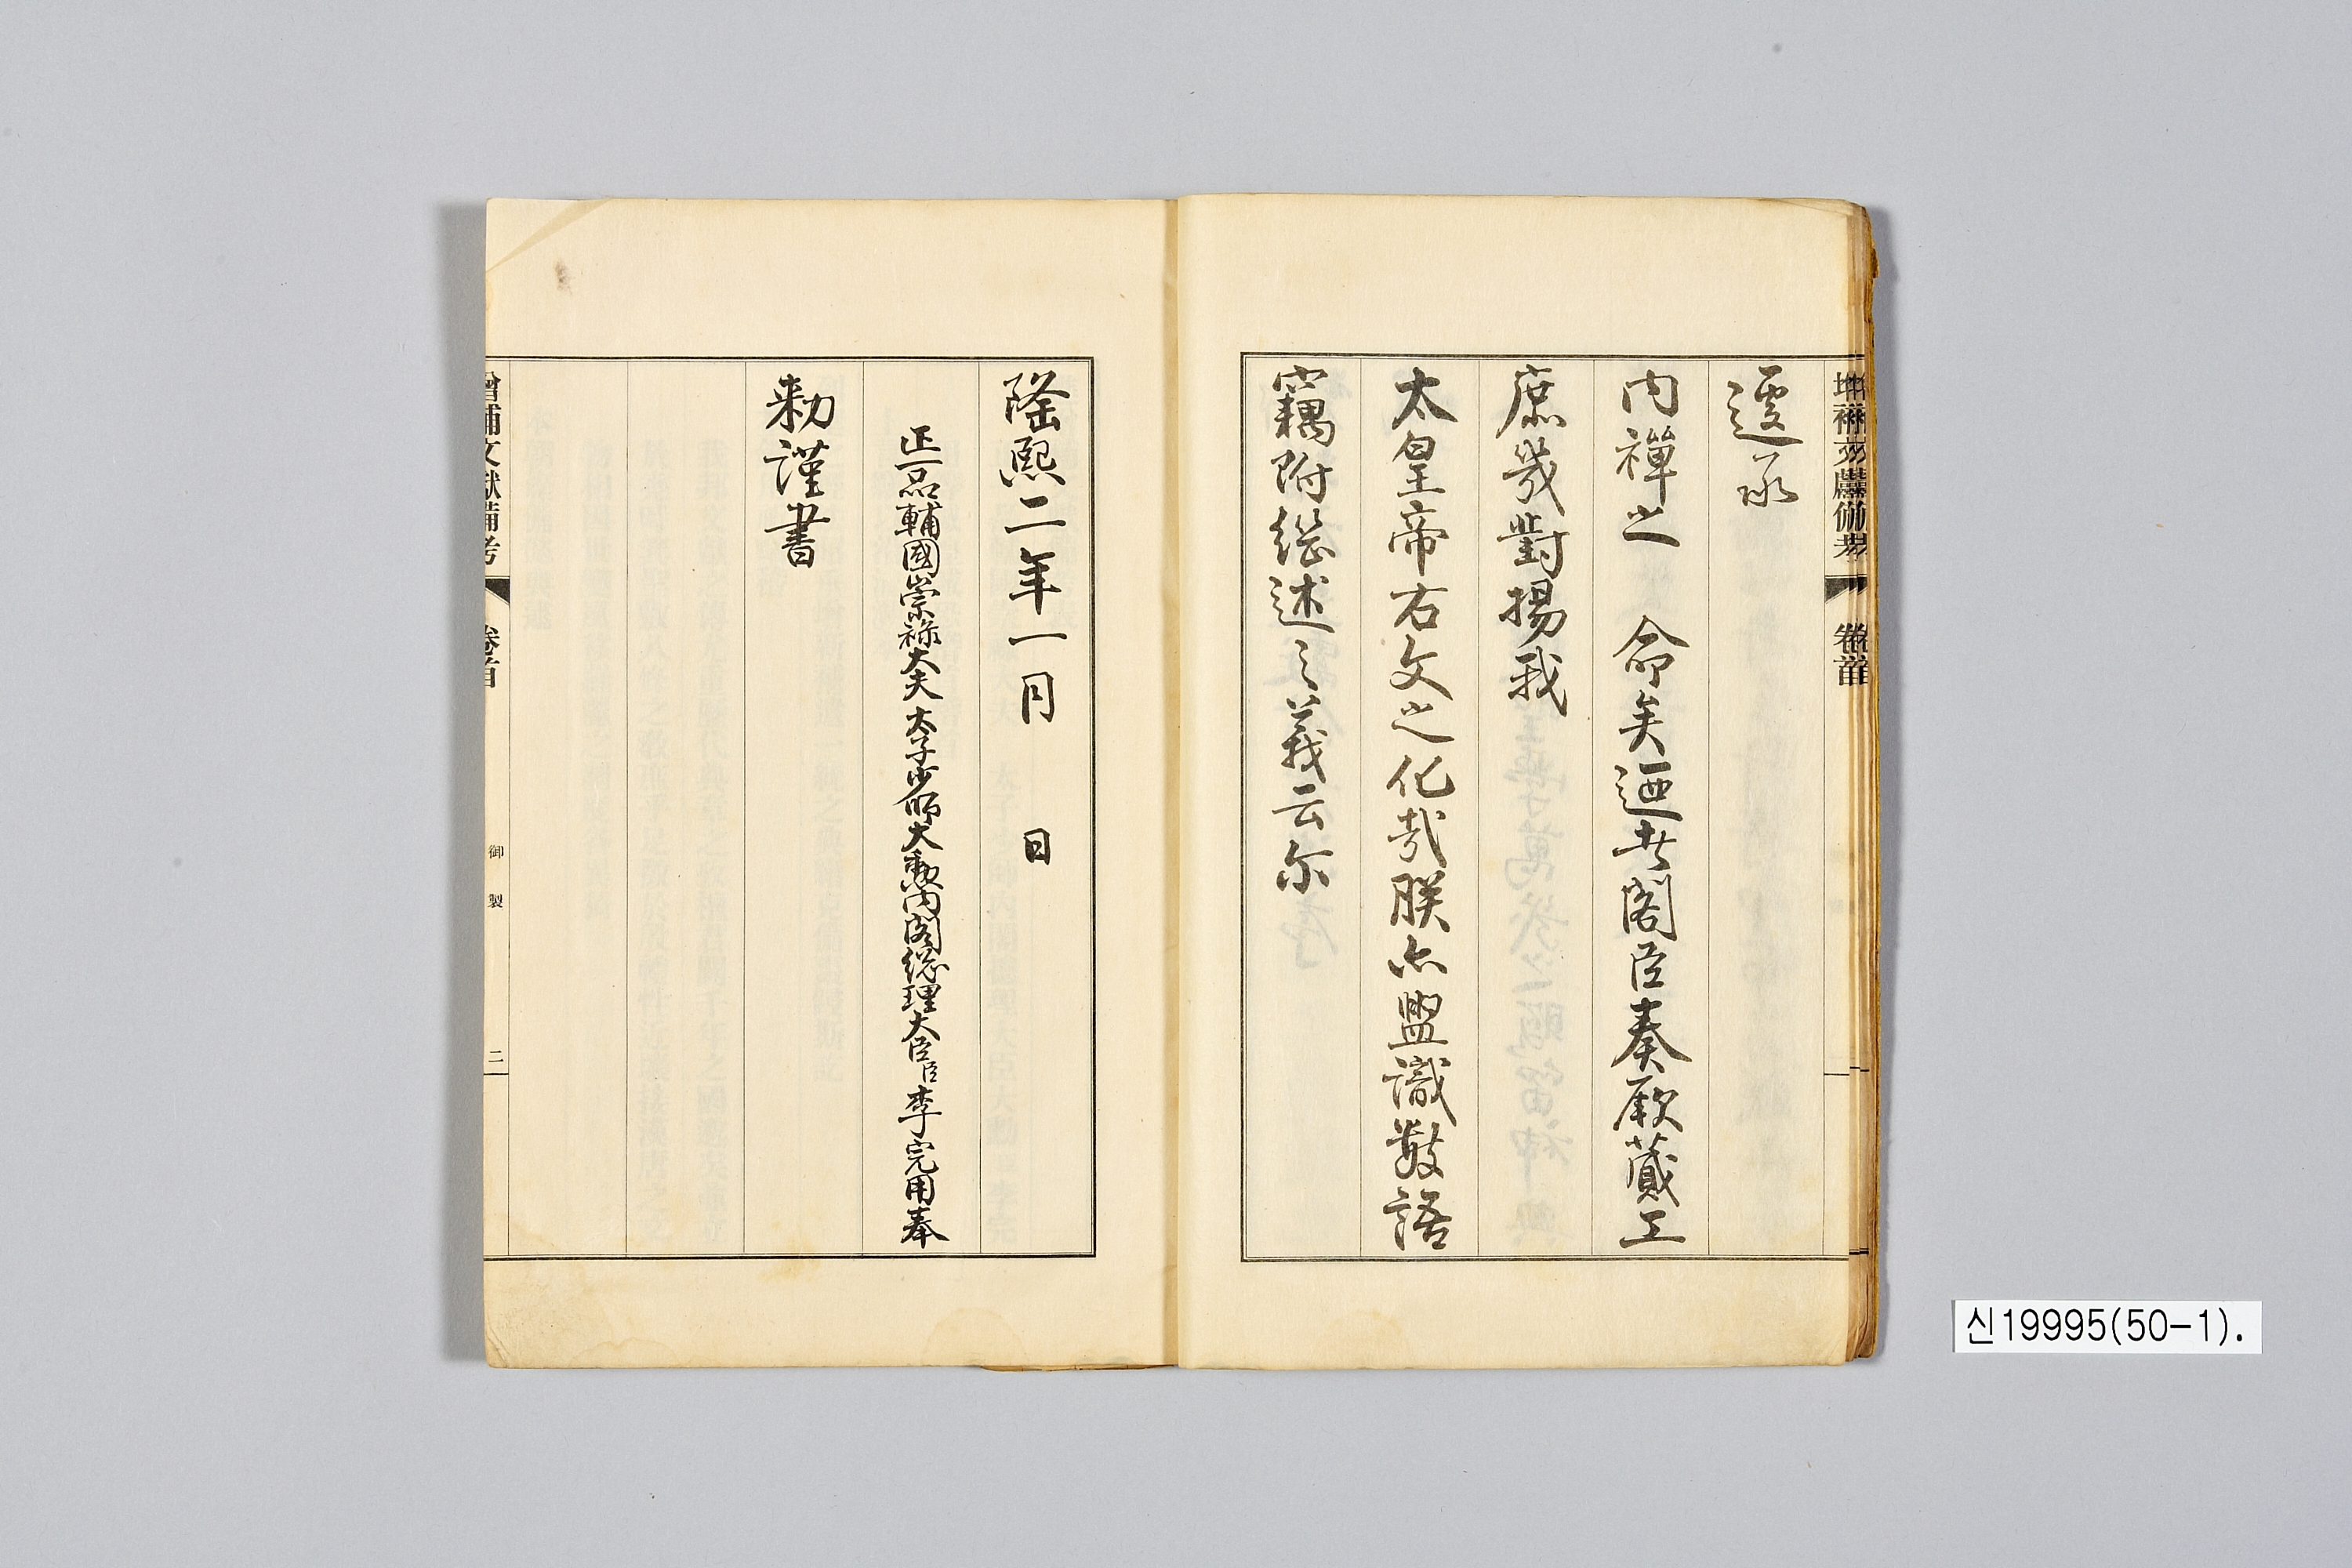 遽承
内禪之 命矣迺者閣臣奏厥蕆工
庶幾對揚我
太皇帝右文之化哉朕亦盥識數語
竊附繼述之義云尔
隆熙二年一月 日
正一品輔國崇祿大夫太子少師大勳內閣總理大臣臣李完用奉
勅謹書
增補文獻備考 卷首 御製 二
신19995(50-1).